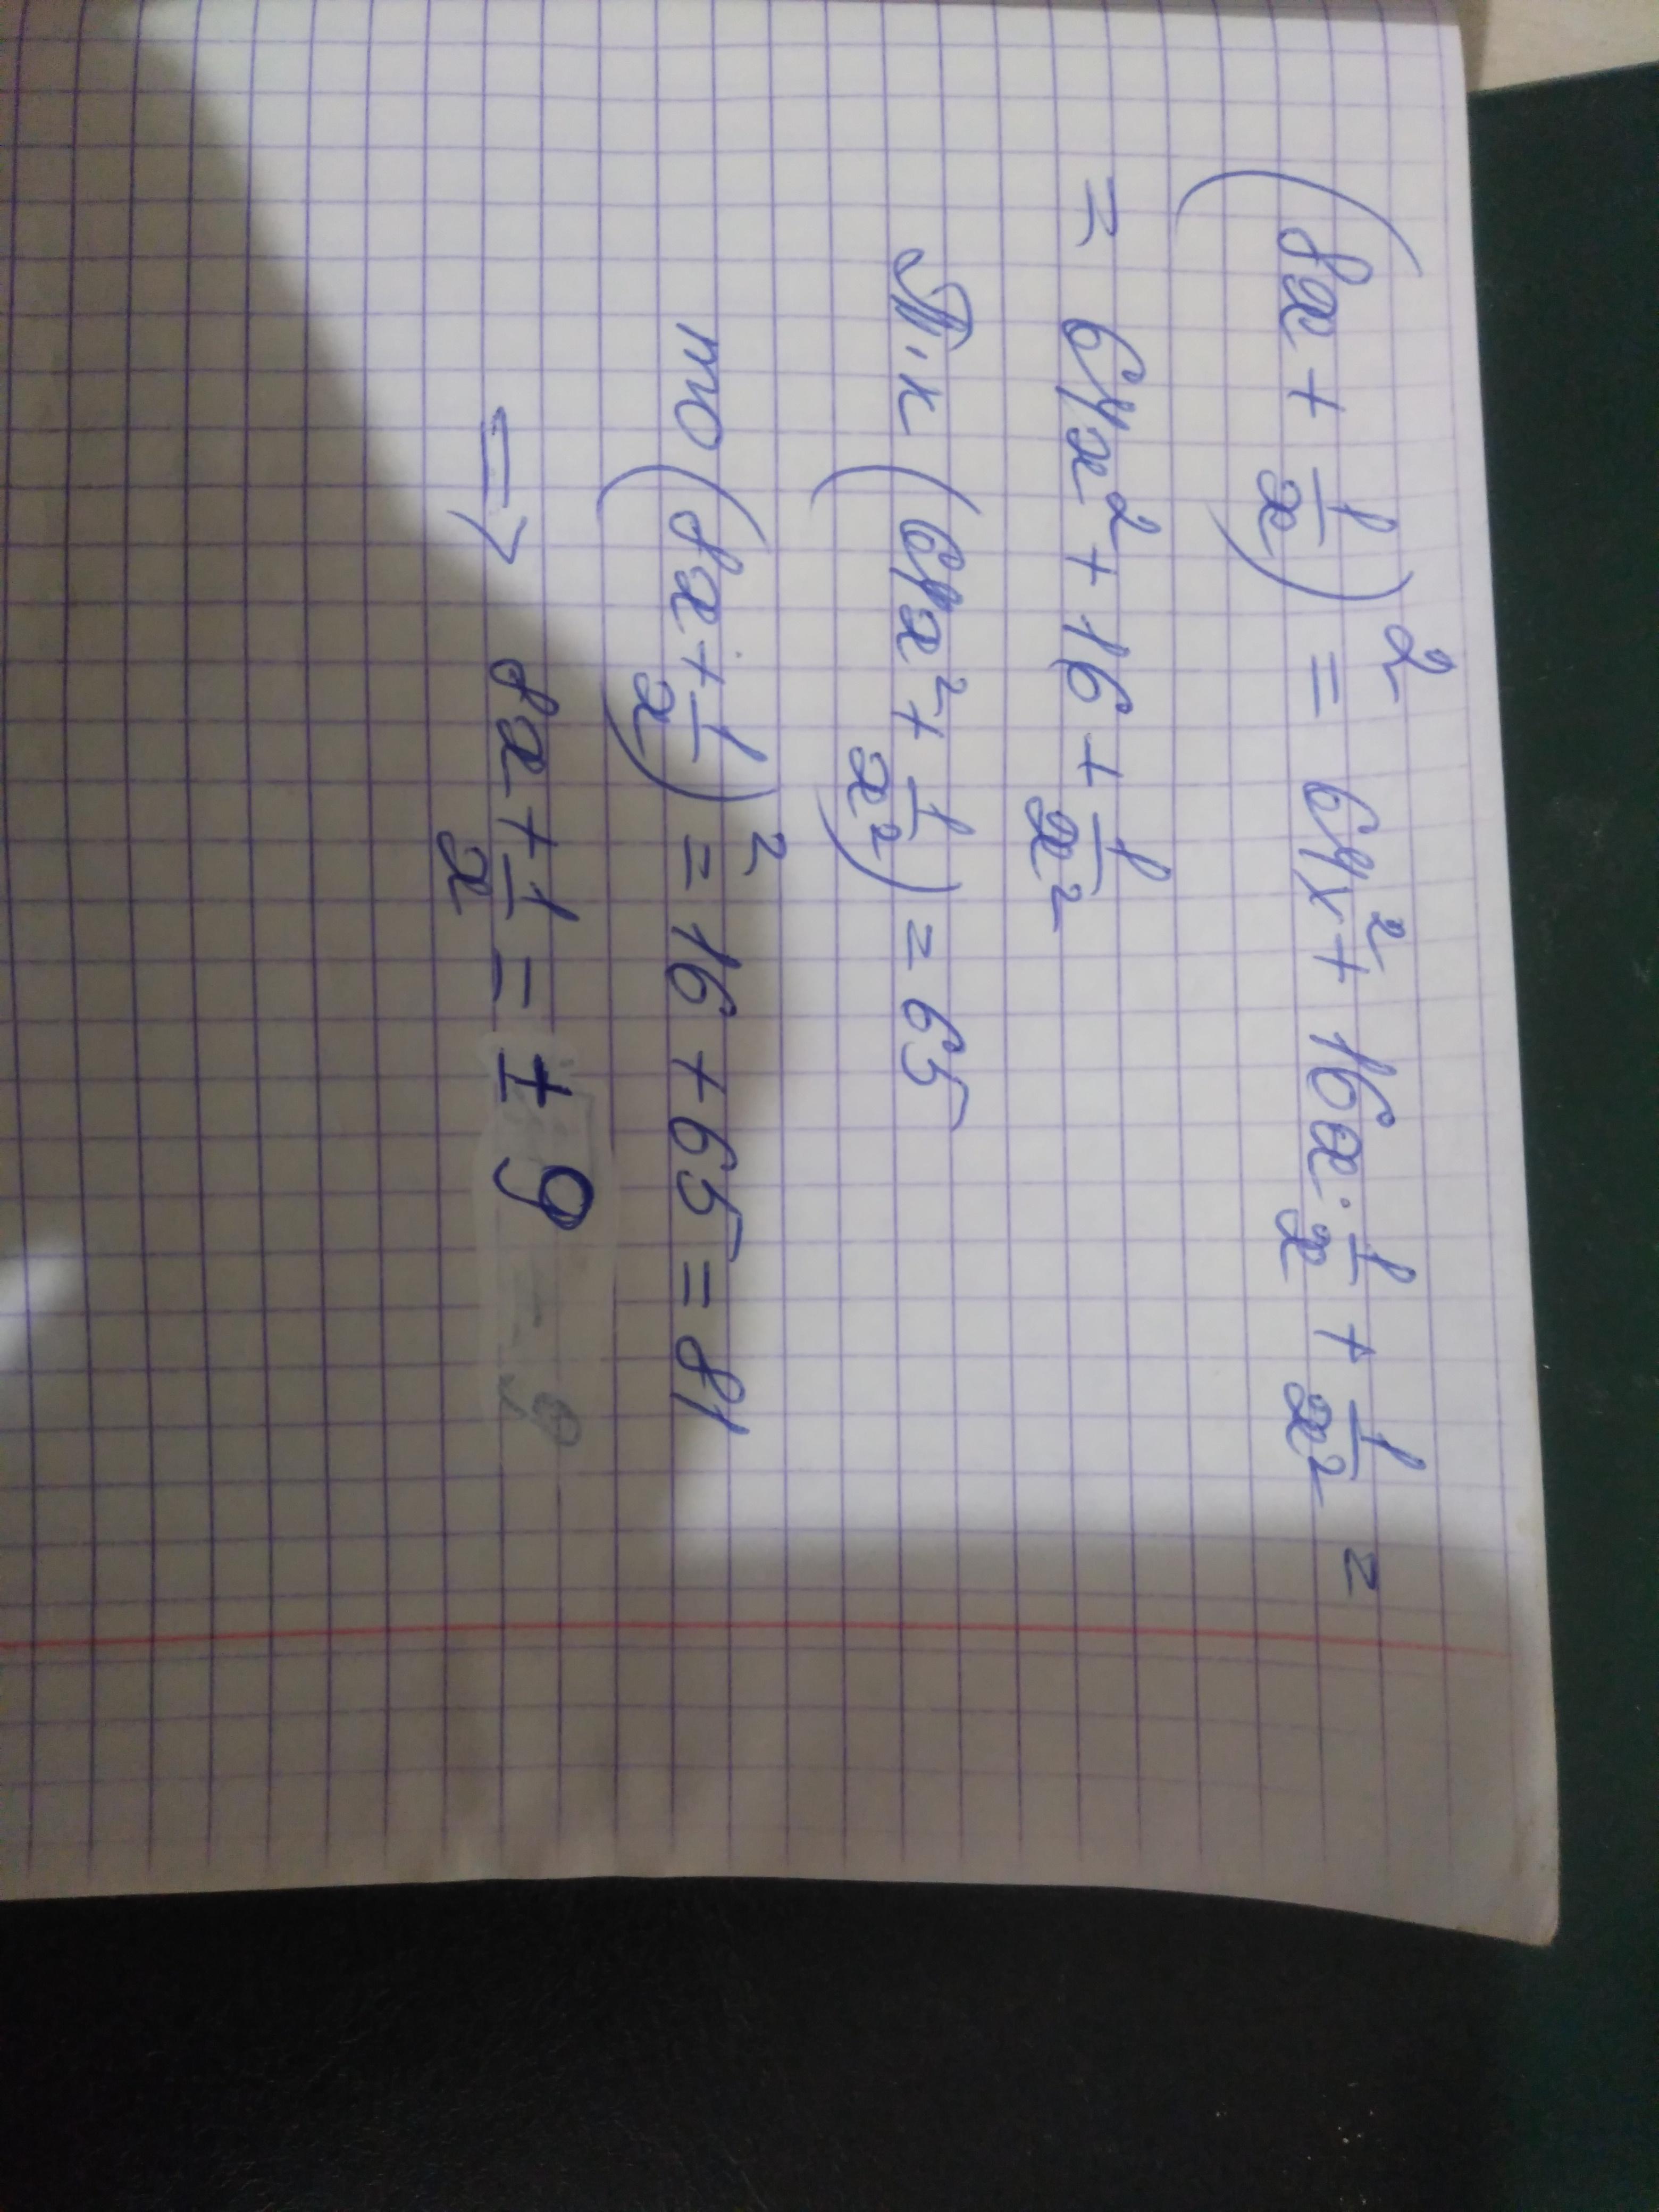 (8x + 1/x)² = 64x² + 16x · 1/x + 1/x² =
= 64x² + 16 + 1/x²
Т.к (64x² + 1/x²) = 65
то (8x + 1/x)² = 16 + 65 = 81
⇒ 8x + 1/x = ± 9